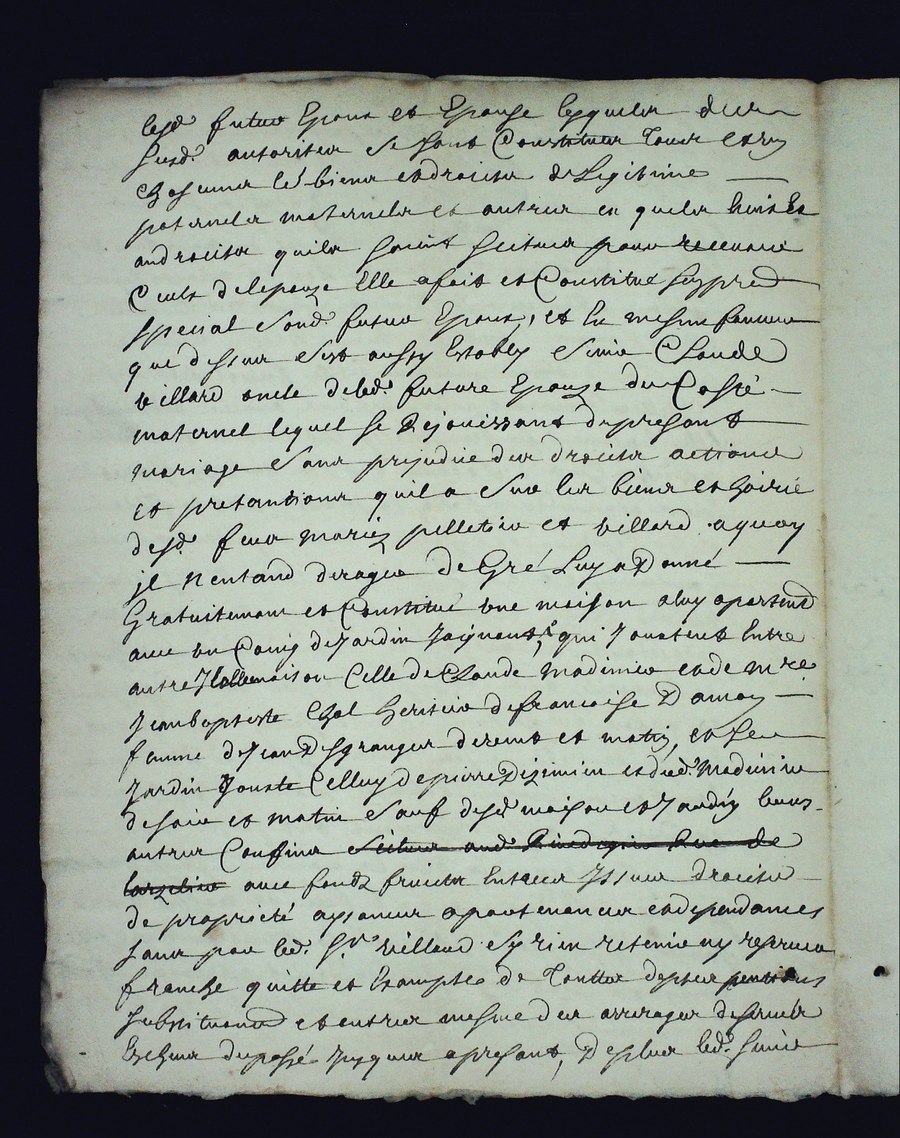 lesd. futur Epoux et Epouse lesquels de leurs
susd. autorites se sont Constitues tous et un
chascuns les biens et droicts de Legitime
paternels maternels et autres en quels lieux et
endroicts quils soint scitues pour recevoir
Ceux de lepouze Elle a fait et Constitué
special Sond. futur Epoux, et En mesme
que dessus s'est aussy Estably sieur Claude
villard oncle de lad. future Epouze du Costé
maternel lequel se Rejouissant du present
mariage sans prejudice des droicts actions
et pretantions quil a sur les biens et hoirie
desd. feus mariez pelletier et villard a quoy
il N'entand deroger de Gré Luy a Donné
Gratuitement et Constitué une maison a luy apartenant
avec un Coing de Jardin Joignant, qui Jouxtent Entre
autre lad. maison Celle de Claude madinier et de mre
Jean baptiste heritier de francoise Damay
femme de Jean Desgranges de vent et matin, et le
Jardin Jouxte Celluy de pierre et dud. madinier
de soir et matin sauf desd. maison et Jardin leurs
autres Confins scitues aud.
avec fonds fruicts Entrees Issues droicts
de proprieté aysances apartenances et dependances
sans par led. Sr. villard y rien retenir ny reserver
franche quitte et Exampte de Touttes debtes pentions
substitutions et autres mesme des arrerages de servis
Escheus du passé Jusques a present, De plus led. sieur